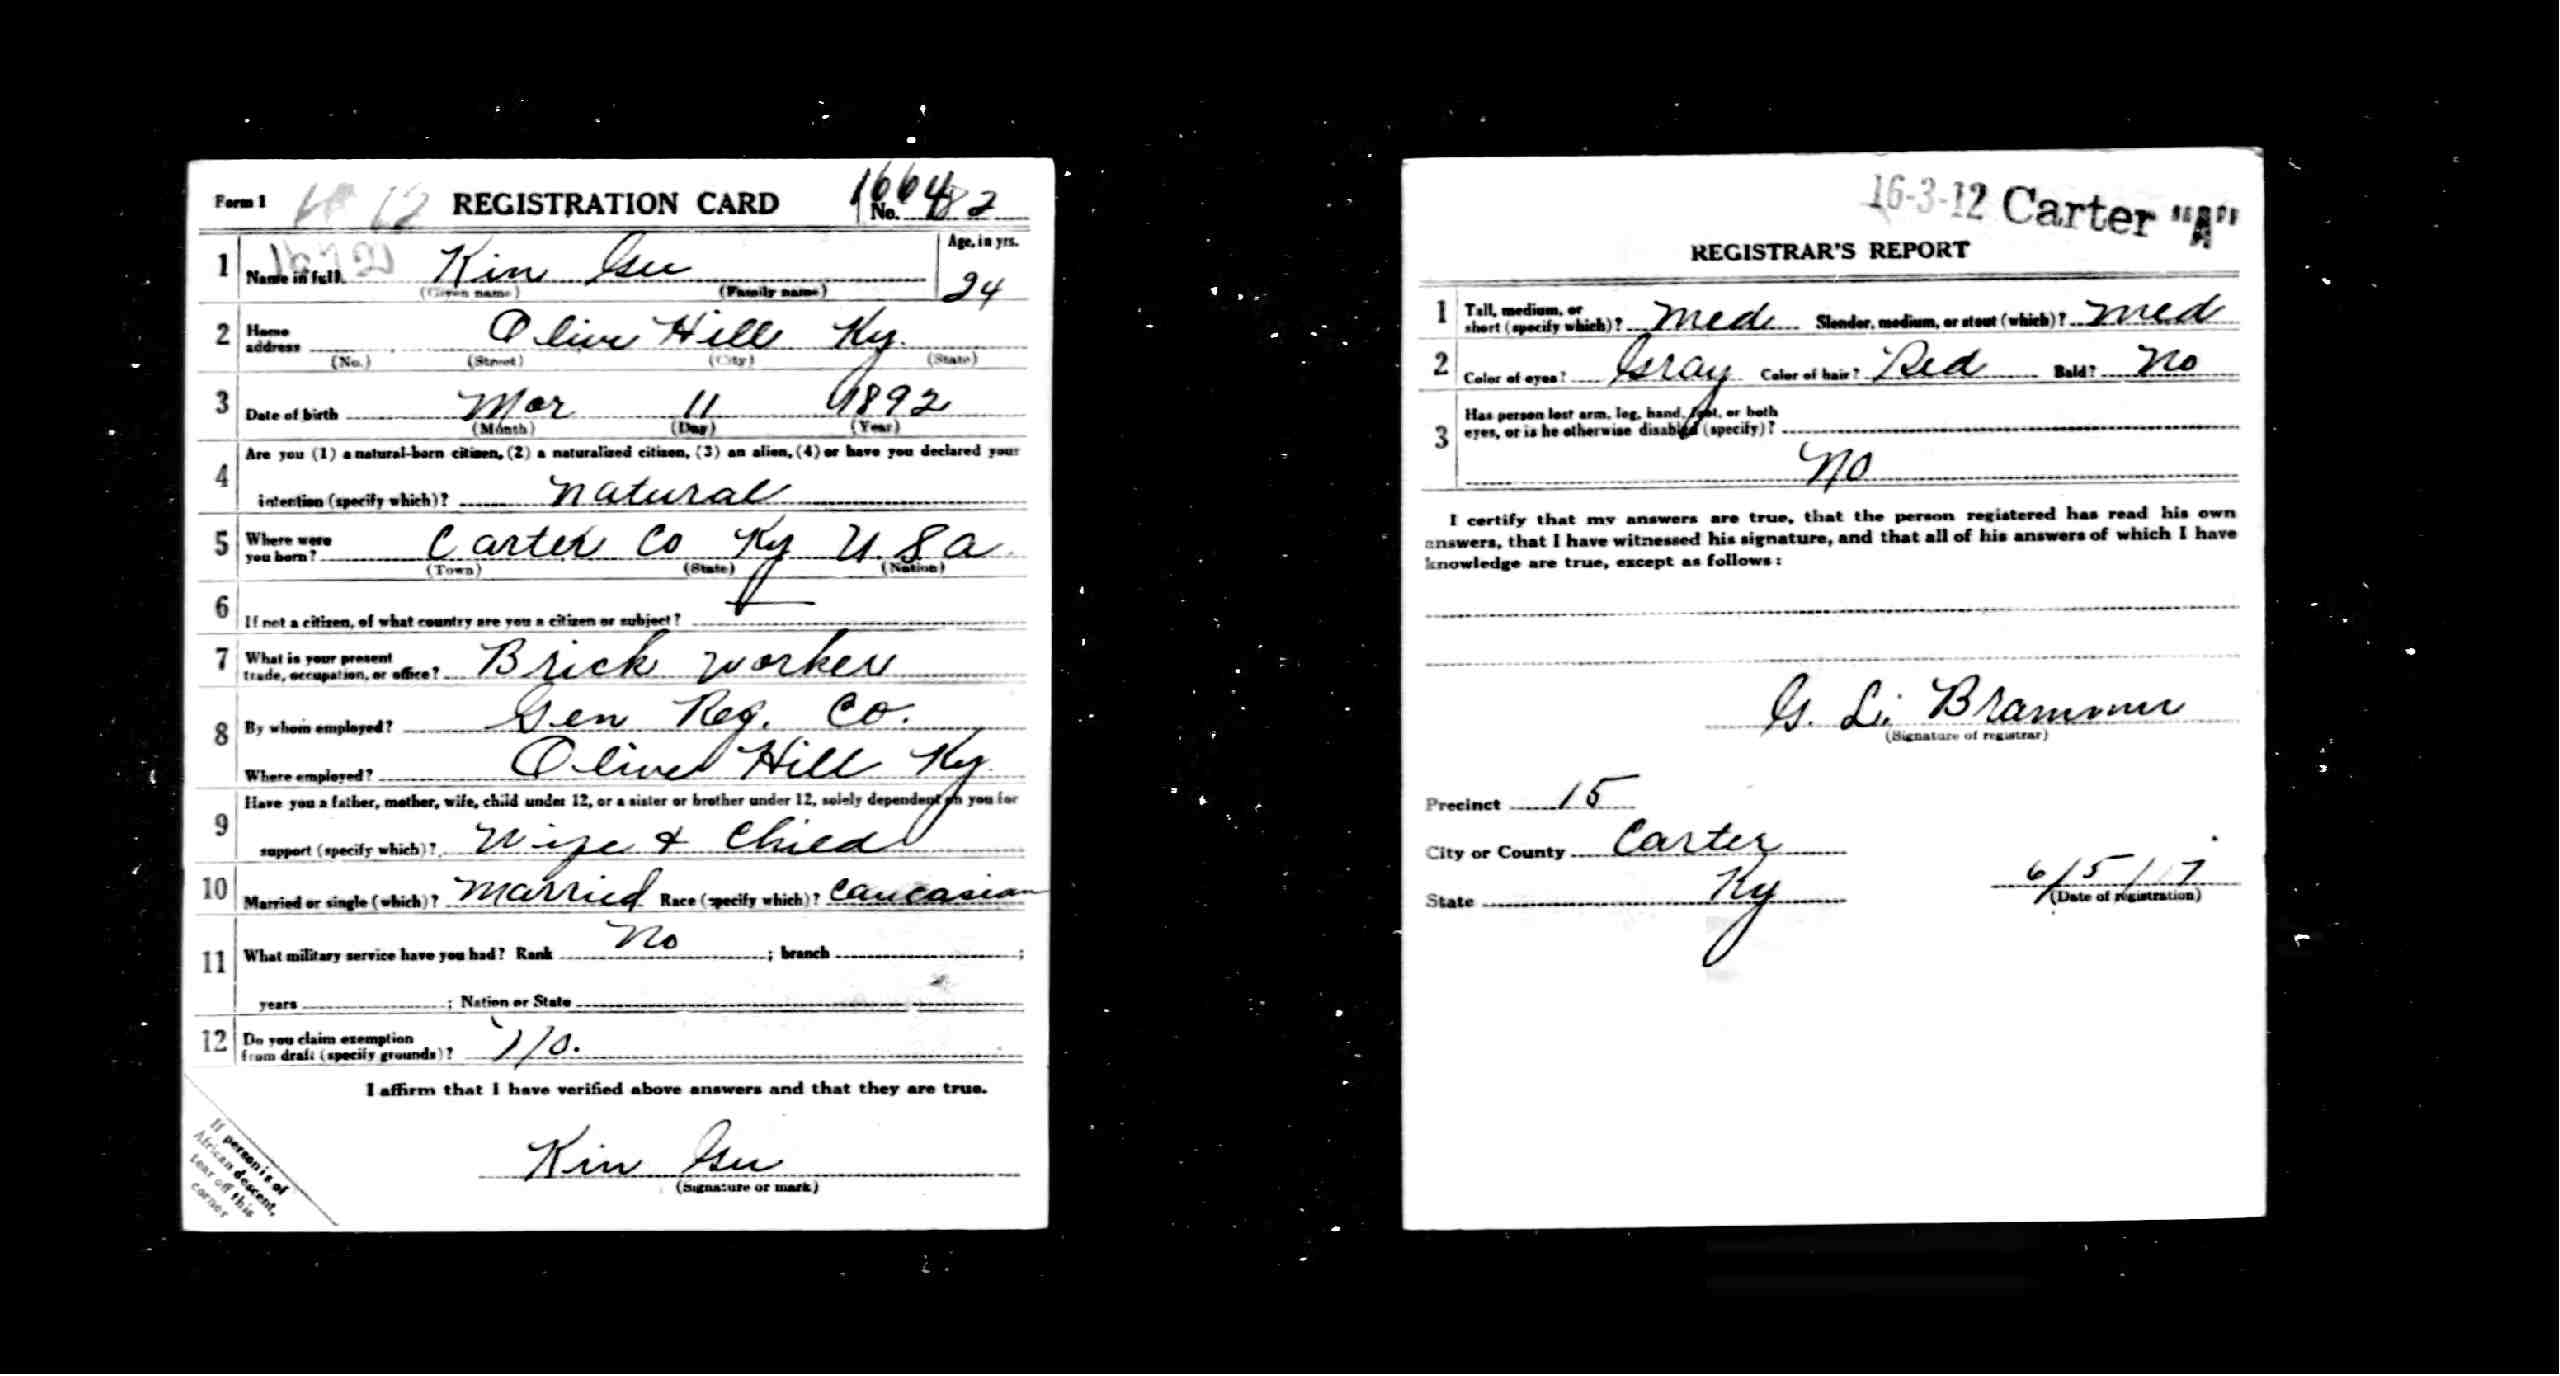 Form 1 REGISTRATION CARD No. 82
1 Name in full Kin Gee Age, in yrs. 24
(Given name) (Family name)
2 Home address Olive Hill Ky.
(No.) (Street) (City) (State)
3 Date of birth Mar 11 1892
(Month) (Day) (Year)
4 Are you (1) a natural-born citizen, (2) a naturalized citizen, (3) an alien, (4) or have you declared your
intention (specify which)? natural
5 Where were you born? Carter Co Ky U.S.a.
(Town) (State) (Nation)
6 If not a citizen, of what country are you a citizen or subject? —
7 What is your present trade, occupation, or office? Brick worker
8 By whom employed? Gen Reg. Co.
Where employed? Olive Hill Ky
9 Have you a father, mother, wife, child under 12, or a sister or brother under 12, solely dependent on you for
support (specify which)? Wife + Child
10 Married or single (which)? married Race (specify which)? Caucasian
11 What military service have you had? Rank No ; branch ;
years ; Nation or State
12 Do you claim exemption from draft (specify grounds)? No.
I affirm that I have verified above answers and that they are true.
Kin Gee
(Signature or mark)
If person is of
African descent,
tear off this
corner
16-3-12 Carter "A"
REGISTRAR'S REPORT
1 Tall, medium, or short (specify which)? med Slender, medium, or stout (which)? med
2 Color of eyes? Gray Color of hair? Red Bald? No
3 Has person lost arm, leg, hand, foot, or both
eyes, or is he otherwise disabled (specify)?
No
I certify that my answers are true, that the person registered has read his own
answers, that I have witnessed his signature, and that all of his answers of which I have
knowledge are true, except as follows:
G. L. Brammer
(Signature of registrar)
Precinct 15
City or County Carter
State Ky 6/5/17
(Date of registration)